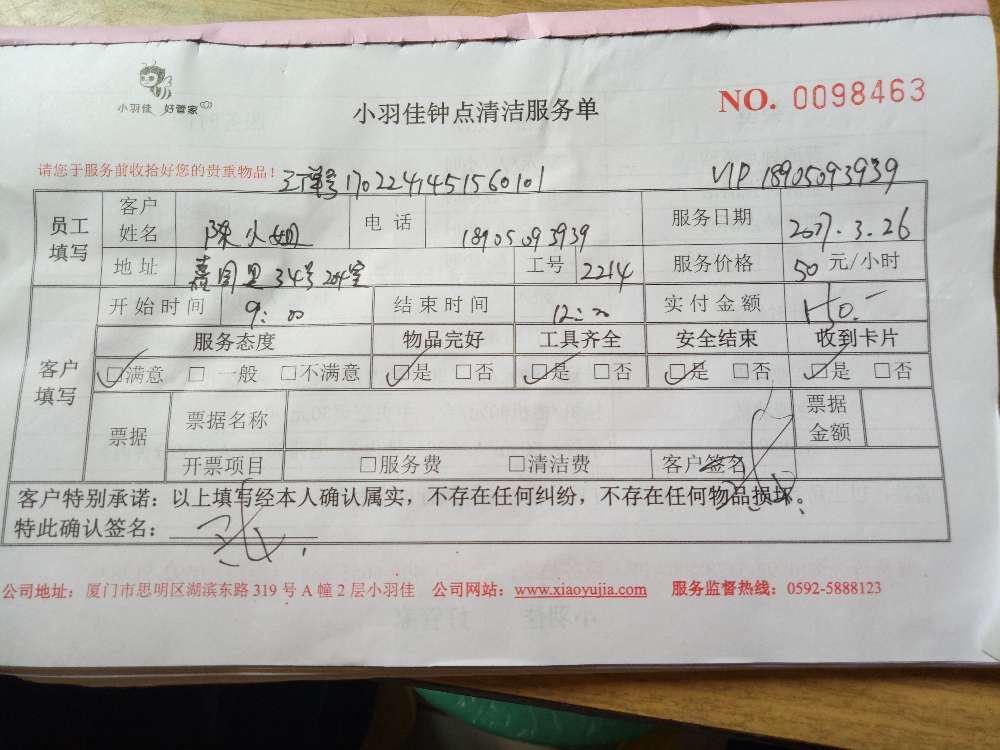 小羽佳 好管家
小羽佳钟点清洁服务单
NO. 0098463
请您于服务前收拾好您的贵重物品!
工单号1702241451560101
VIP 18905093939
员工填写 客户姓名 陈小姐 电话 18905093939 服务日期 2017.3.26
地址 嘉园里34号204室 工号 2214 服务价格 50 元/小时
客户填写 开始时间 9:00 结束时间 12:00 实付金额 150.-
服务态度 物品完好 工具齐全 安全结束 收到卡片
☑满意 □一般 □不满意 ☑是 □否 ☑是 □否 ☑是 □否 ☑是 □否
票据 票据名称 票据金额
开票项目 □服务费 □清洁费 客户签名
客户特别承诺:以上填写经本人确认属实,不存在任何纠纷,不存在任何物品损坏。
特此确认签名:
公司地址:厦门市思明区湖滨东路319号A幢2层小羽佳 公司网站:www.xiaoyujia.com 服务监督热线:0592-5888123